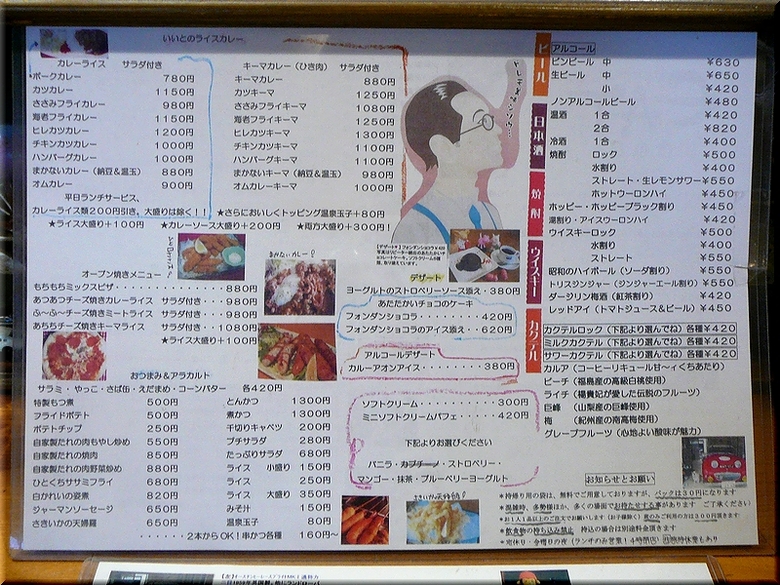 いいとのライスカレー
カレーライス サラダ付き
ポークカレー 780円
カツカレー 1150円
ささみフライカレー 980円
海老フライカレー 1150円
ヒレカツカレー 1200円
チキンカツカレー 1000円
ハンバーグカレー 1000円
まかないカレー(納豆&温玉) 880円
オムカレー 900円
平日ランチサービス、
カレーライス類200円引き、大盛りは除く!!
★ライス大盛り+100円 ★カレーソース大盛り+200円 ★両方大盛り+300円!
キーマカレー(ひき肉) サラダ付き
キーマカレー 880円
カツキーマ 1250円
ささみフライキーマ 1080円
海老フライキーマ 1250円
ヒレカツキーマ 1300円
チキンカツキーマ 1100円
ハンバーグキーマ 1100円
まかないキーマ(納豆&温玉) 980円
オムカレーキーマ 1000円
★さらにおいしくトッピング温泉玉子+80円
オーブン焼きメニュー
もちもちミックスピザ 880円
あつあつチーズ焼きカレーライス サラダ付き・・・980円
ふ~ふ~チーズ焼きミートライス サラダ付き・・・980円
あちちチーズ焼きキーマライス サラダ付き・・・1080円
★ライス大盛り+100円
まかないカレー!
デザート
ヨーグルトのストロベリーソース添え・380円
あたたかいチョコのケーキ
フォンダンショコラ・・・420円
フォンダンショコラのアイス添え・・・620円
アルコールデザート
カルーアオンアイス・・・380円
ソフトクリーム・・・300円
ミニソフトクリームパフェ・・・420円
下記よりお選びください
バニラ・カプチーノ・ストロベリー・
マンゴー・抹茶・ブルーベリーヨーグルト
おつまみ&アラカルト
サラミ・やっこ・さば缶・えだまめ・コーンバター 各420円
特製もつ煮 500円
フライドポテト 500円
ポテトチップ 250円
自家製だれの肉もやし炒め 550円
自家製だれの焼肉 850円
自家製だれの肉野菜炒め 880円
ひとくちササミフライ 680円
白かれいの姿煮 820円
ジャーマンソーセージ 650円
さきいかの天婦羅 650円
とんかつ 1300円
煮かつ 1300円
千切りキャベツ 200円
プチサラダ 280円
たっぷりサラダ 680円
ライス 小盛り 150円
ライス 250円
ライス 大盛り 350円
みそ汁 150円
温泉玉子 80円
・・・2本からOK!串かつ各種 160円~
さきいか天婦羅!
ビール
アルコール
ビンビール 中 ¥630
生ビール 中 ¥650
小 ¥420
ノンアルコールビール ¥480
日本酒
温酒 1合 ¥420
2合 ¥820
冷酒 1合 ¥400
焼酎
焼酎 ロック ¥500
水割り ¥400
ストレート・生レモンサワー¥550
ホットウーロンハイ ¥450
ホッピー・ホッピーブラック割り ¥450
湯割り・アイスウーロンハイ ¥420
ウイスキー
ウイスキーロック ¥500
水割り ¥400
ストレート ¥550
昭和のハイボール(ソーダ割り) ¥550
トリスジンジャー(ジンジャーエール割り)¥550
ダージリン梅酒(紅茶割り) ¥420
レッドアイ(トマトジュース&ビール)¥450
カクテル
カクテルロック(下記より選んでね)各種¥420
ミルクカクテル(下記より選んでね)各種¥420
サワーカクテル(下記より選んでね)各種¥420
カルア(コーヒーリキュール甘~ィくちあたり)
ピーチ(福島産の高級白桃使用)
ライチ(楊貴妃が愛した伝説のフルーツ)
巨峰 (山梨産の巨峰使用)
梅 (紀州産の南高梅使用)
グレープフルーツ(心地よい酸味が魅力)
お知らせとお願い
*持帰り用の袋は、無料でご用意しておりますが、パックは30円になります
*混雑時、多勢様ほか、多くの場面でお待たせする事があります ご了承ください
*お1人1品以上のご注文お願いします
*飲食物の持ち込み禁止 持込の場合は別途料金頂きます